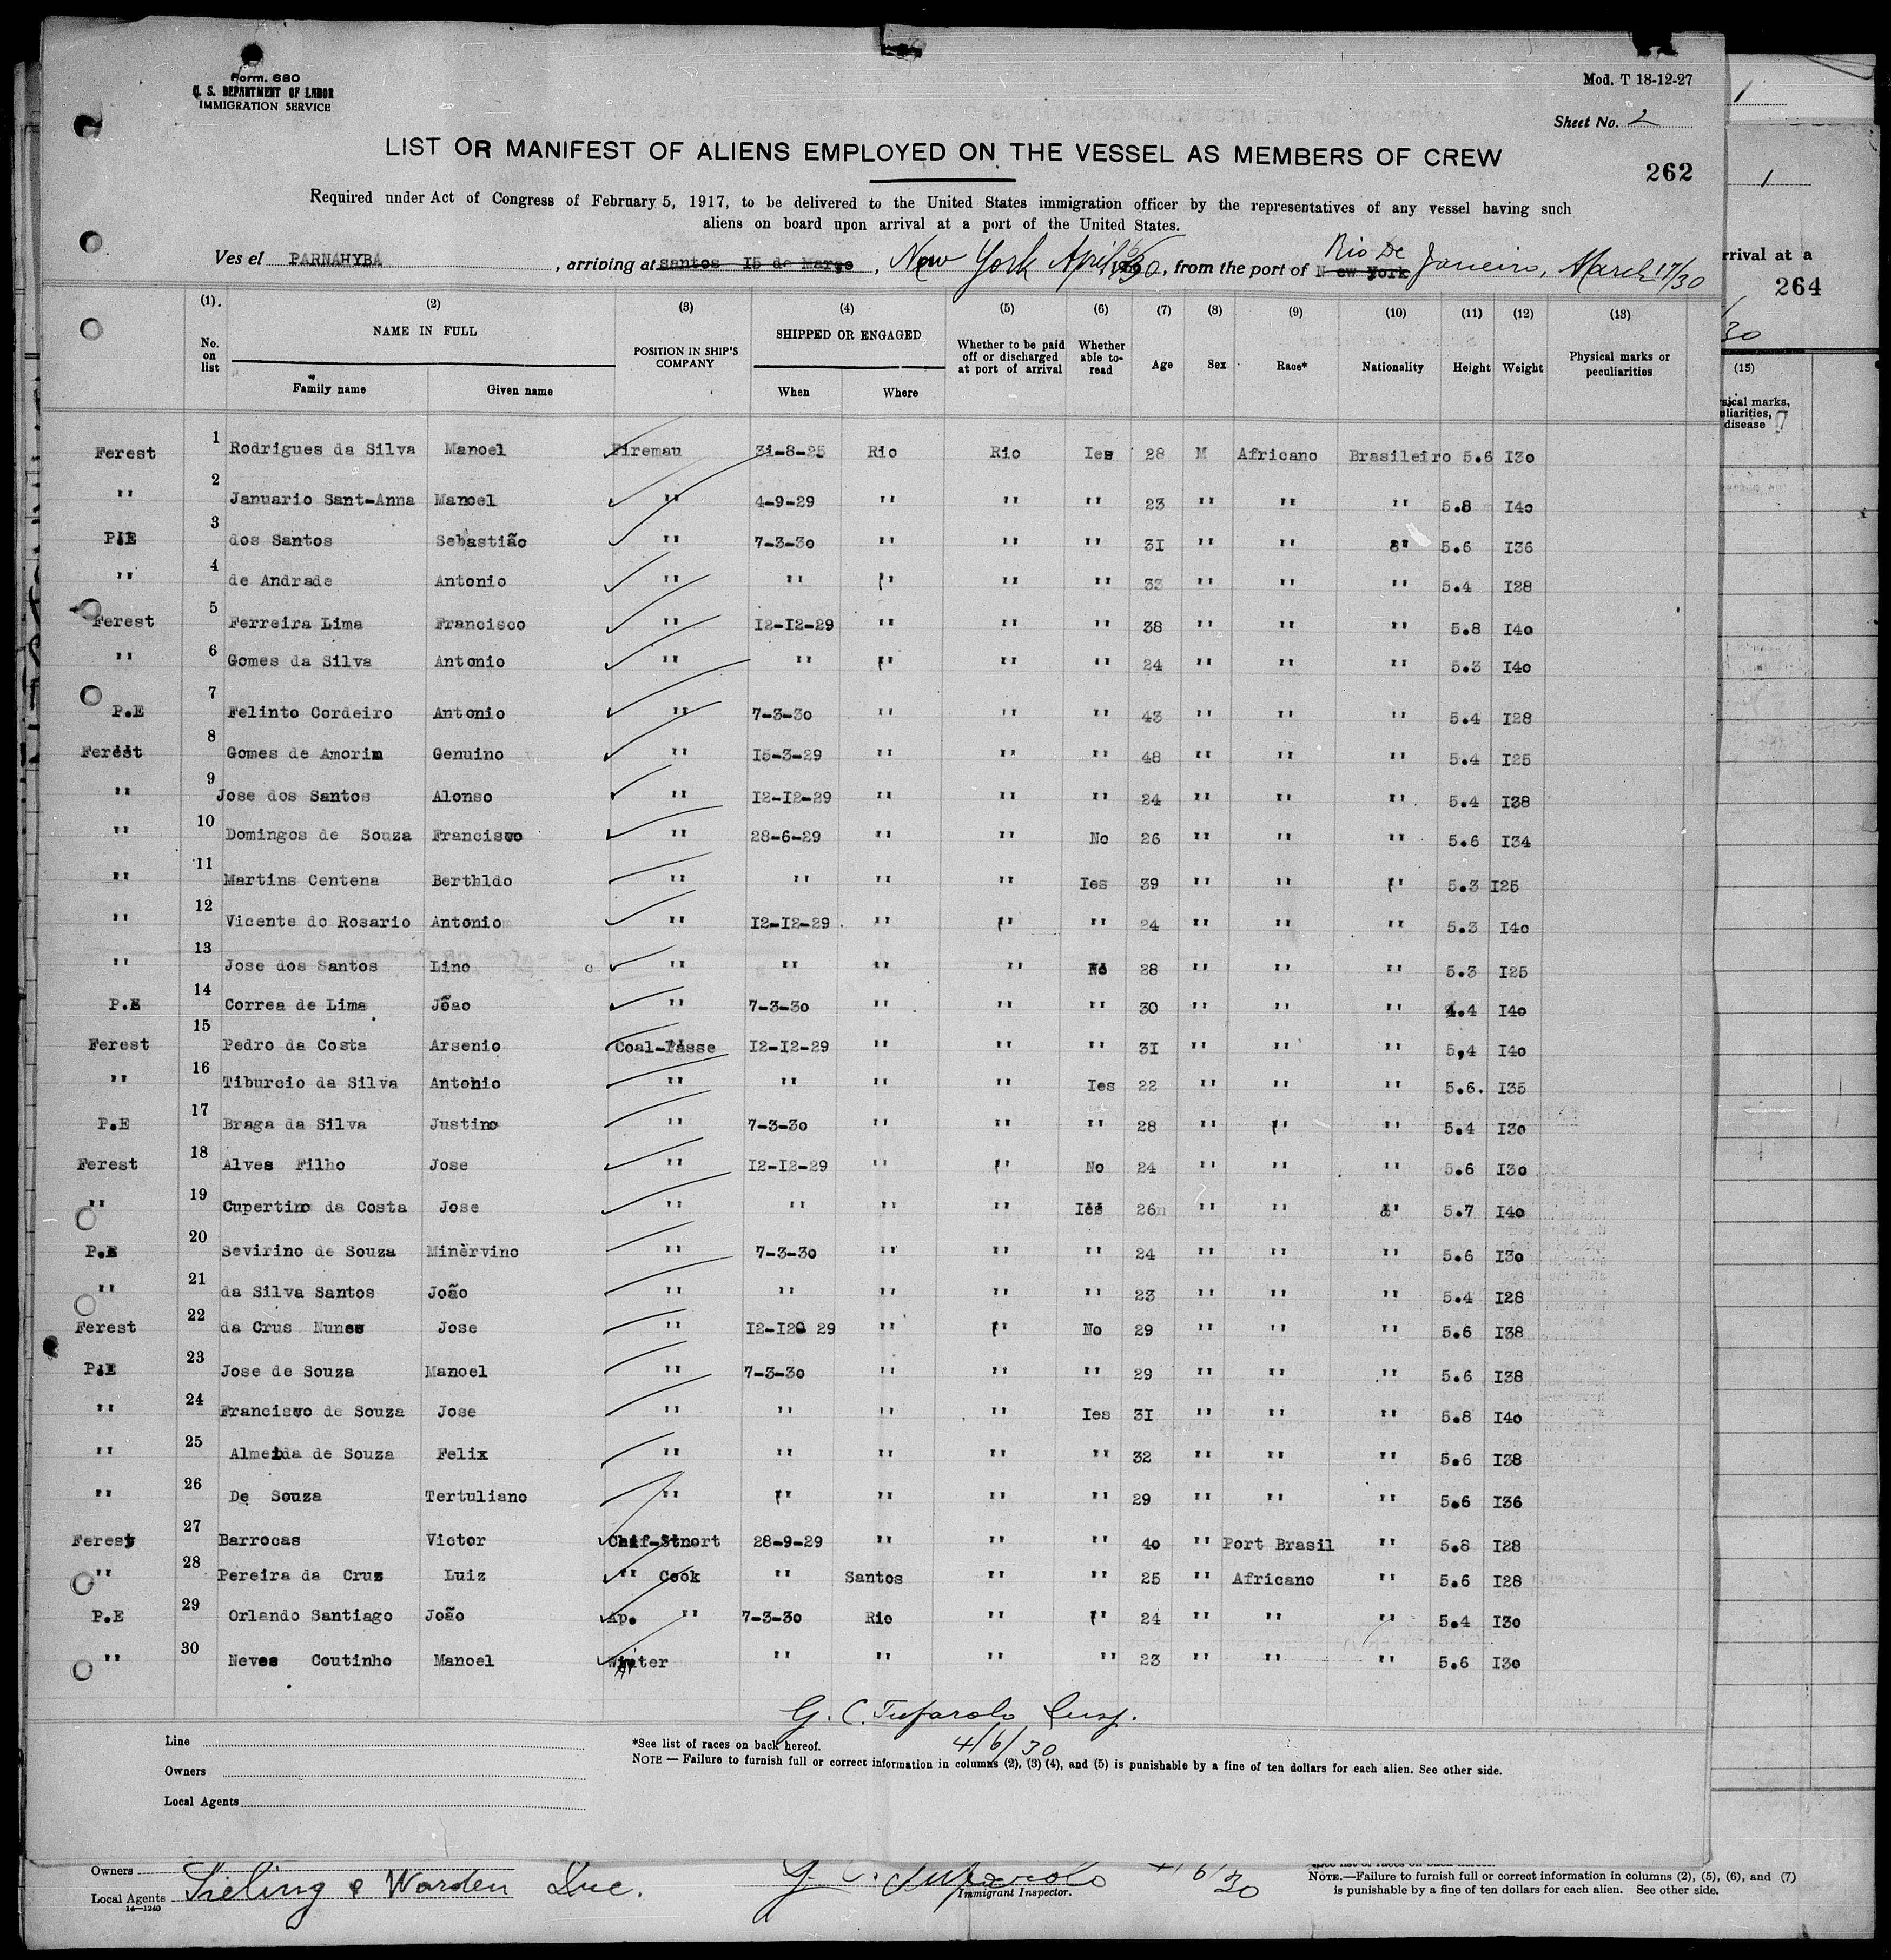 Form. 680
U. S. DEPARTMENT OF LABOR
IMMIGRATION SERVICE
Mod. T 18-12-27
Sheet No. 2
LIST OR MANIFEST OF ALIENS EMPLOYED ON THE VESSEL AS MEMBERS OF CREW
262
Required under Act of Congress of February 5, 1917, to be delivered to the United States immigration officer by the representatives of any vessel having such
aliens on board upon arrival at a port of the United States.
Ves el PARNAHYBA , arriving at santos I5 de Março , New York April 6/30, from the port of N ew York Rio De Janeiro, March 17/30
(1). (2) (3) (4) (5) (6) (7) (8) (9) (10) (11) (12) (13)
No. on list NAME IN FULL Family name Given name POSITION IN SHIP'S COMPANY SHIPPED OR ENGAGED When Where Whether to be paid off or discharged at port of arrival Whether able to- read Age Sex Race* Nationality Height Weight Physical marks or peculiarities
Ferest 1 Rodrigues da Silva Manoel Firemau 3I-8-25 Rio Rio Ies 28 M Africano Brasileiro 5.6 I3o
" 2 Januario Sant-Anna Manoel " 4-9-29 " " " 23 " " " 5.8 I4o
P.E 3 dos Santos Sebastião " 7-3-3o " " " 3I " " " 5.6 I36
" 4 de Andrade Antonio " " " " " 33 " " " 5.4 I28
Ferest 5 Ferreira Lima Francisco " I2-I2-29 " " " 38 " " " 5.8 I4o
" 6 Gomes da Silva Antonio " " " " " 24 " " " 5.3 I4o
P.E 7 Felinto Cordeiro Antonio " 7-3-3o " " " 43 " " " 5.4 I28
Ferest 8 Gomes de Amorim Genuino " I5-3-29 " " " 48 " " " 5.4 I25
" 9 Jose dos Santos Alonso " I2-I2-29 " " " 24 " " " 5.4 I38
" 10 Domingos de Souza Francisco " 28-6-29 " " No 26 " " " 5.6 I34
" 11 Martins Centena Berthldo " " " " Ies 39 " " " 5.3 I25
" 12 Vicente do Rosario Antonio " I2-I2-29 " " " 24 " " " 5.3 I4o
" 13 Jose dos Santos Lino " " " " No 28 " " " 5.3 I25
P.E 14 Correa de Lima Jõao " 7-3-3o " " " 30 " " " 4.4 I4o
Ferest 15 Pedro da Costa Arsenio Coal-Passe I2-I2-29 " " " 3I " " " 5,4 I4o
" 16 Tiburcio da Silva Antonio " " " " Ies 22 " " " 5.6. I35
P.E 17 Braga da Silva Justino " 7-3-3o " " " 28 " " " 5.4 I3o
Ferest 18 Alves Filho Jose " I2-I2-29 " " No 24 " " " 5.6 I3o
" 19 Cupertino da Costa Jose " " " " Ies 26 " " " 5.7 I4o
P.E 20 Sevirino de Souza Minervino " 7-3-3o " " " 24 " " " 5.6 I3o
" 21 da Silva Santos João " " " " " 23 " " " 5.4 I28
Ferest 22 da Crus Nunes Jose " I2-I2 29 " " No 29 " " " 5.6 I38
P.E 23 Jose de Souza Manoel " 7-3-3o " " " 29 " " " 5.6 I38
" 24 Francisco de Souza Jose " " " " Ies 3I " " " 5.8 I4o
" 25 Almeida de Souza Felix " " " " " 32 " " " 5.6 I38
" 26 De Souza Tertuliano " " " " " 29 " " " 5.6 I36
Ferest 27 Barrocas Victor Chif-Stnort 28-9-29 " " " 4o " Port Brasil " 5.8 I28
" 28 Pereira da Cruz Luiz " Cook " Santos " " 25 " Africano " 5.6 I28
P.E 29 Orlando Santiago João Ap. " 7-3-3o Rio " " 24 " " " 5.4 I3o
" 30 Neves Coutinho Manoel Waiter " " " " 23 " " " 5.6 I3o
G. C. Tufarolo Insp.
4/6/30
Line
Owners
Local Agents
*See list of races on back hereof.
NOTE — Failure to furnish full or correct information in columns (2), (3) (4), and (5) is punishable by a fine of ten dollars for each alien. See other side.
Owners
Local Agents Sieling & Warden Inc.
14—1240
G. C. Tufarolo 4/6/30
Immigrant Inspector.
NOTE.—Failure to furnish full or correct information in columns (2), (5), (6), and (7)
is punishable by a fine of ten dollars for each alien. See other side.
1
1
rrival at a
264
30
(15)
sical marks,
uliarities,
disease